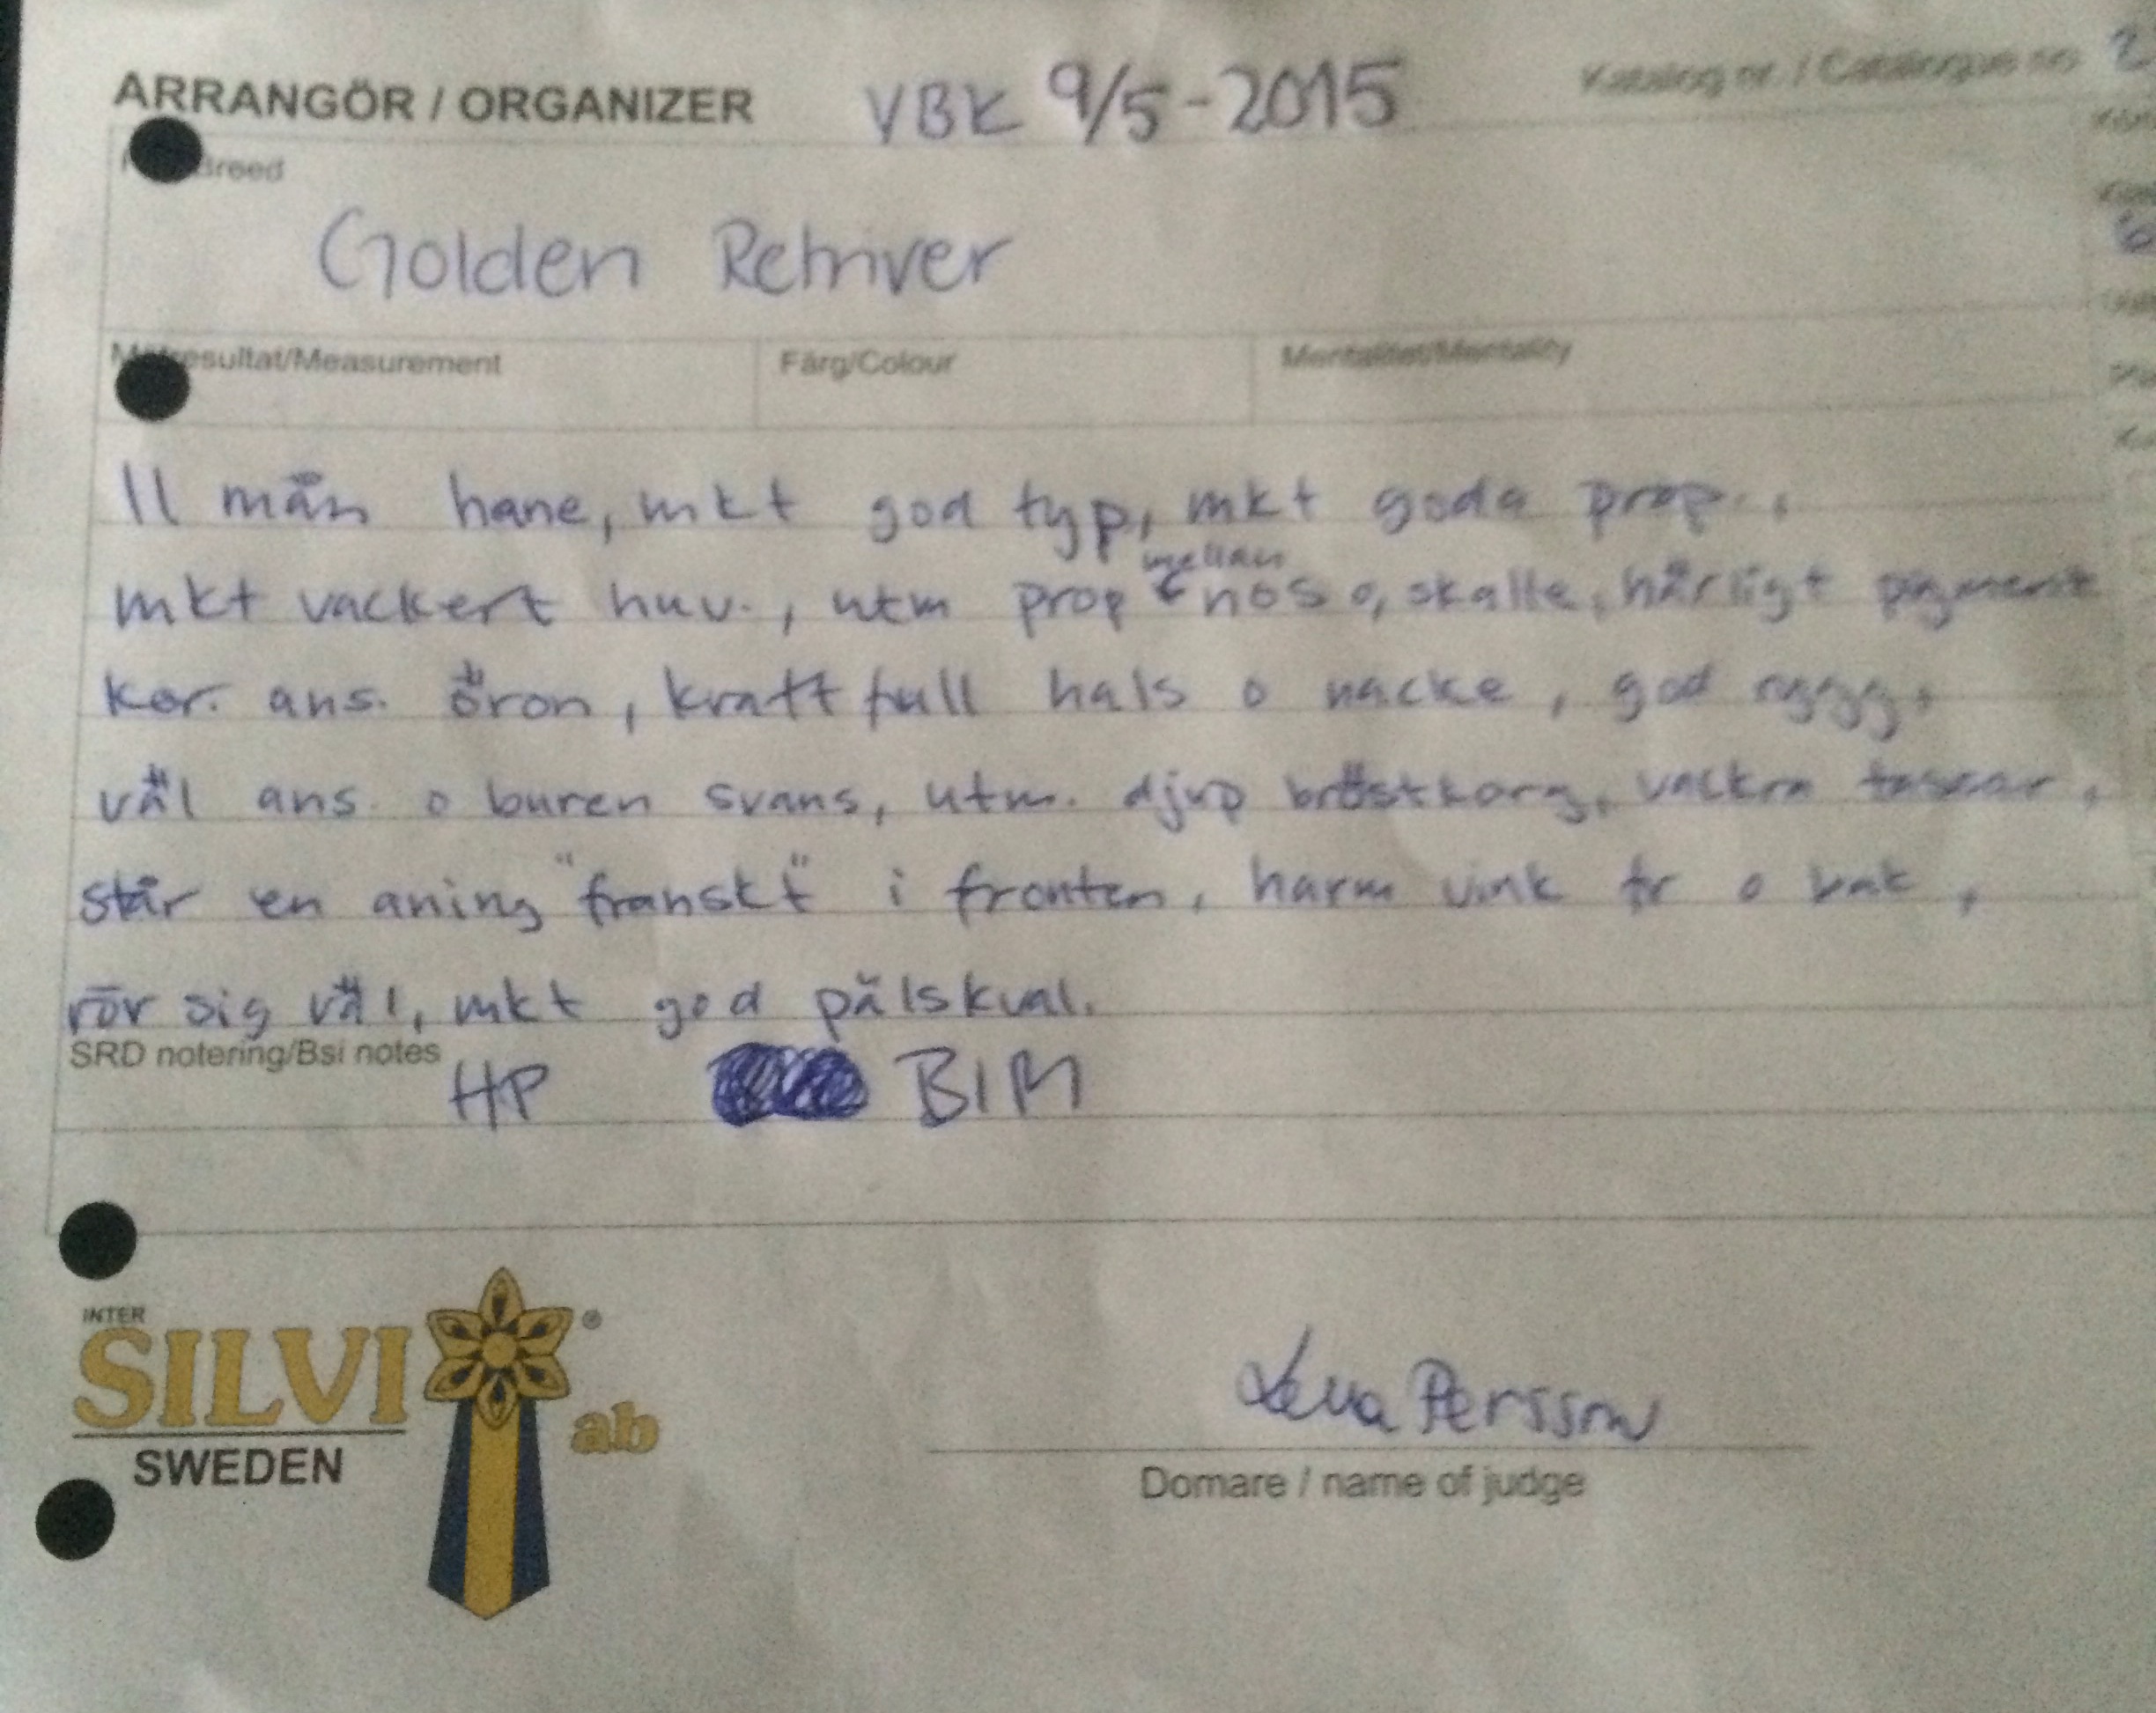 ARRANGÖR / ORGANIZER VBK 9/5-2015 Katalog nr. / Catalogue no
Breed
Golden Retriver
Mätresultat/Measurement Färg/Colour Mentalitet/Mentality
11 mån hane, mkt god typ, mkt goda prop.,
mellan
mkt vackert huv., utm prop nos o, skalle, härligt pigment
kor. ans. öron, kraftfull hals o nacke, god rygg,
väl ans. o buren svans, utm. djup bröstkorg, vackra tassar,
står en aning "franskt" i fronten, harm vink fr o bak,
rör sig väl, mkt god pälskval.
SRD notering/Bsi notes
HP BIM
INTER
SILVI ® ab
SWEDEN
Lena Persson
Domare / name of judge